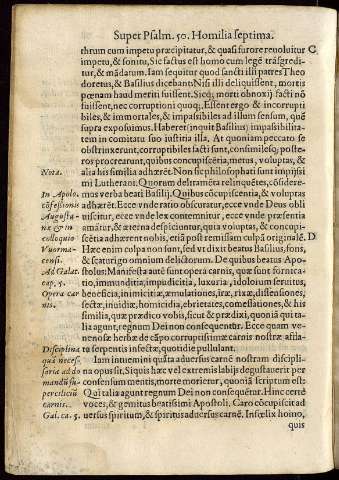 Super Psalm. 50. Homilia septima.
thrum cum impetu præcipitatur, & quasi furore reuoluitur C
impetu, & sonitu, Sic factus est homo cum legē trāsgredi-
tur, & mādatum. Iam sequitur quod sancti illi patres Theo
doretus, & Basilius dicebant Nisi illi deliquissent, mortis
pœnam haud meriti fuissent. Sicq; morti obnoxij facti nō
fuissent, nec corruptioni quoq;. Essent ergo & incorrupti
biles, & immortales, & impassibiles ad illum sensum, quē
supra exposuimus. Haberet (inquit Basilius) impassibilita-
tem in comitatu suo iustitia illa. At quoniam peccato se
obstrinxerunt, corruptibiles facti sunt, consimilesq; poste-
ros procrearunt, quibus concupiscētia, metus, voluptas, &
Nota. alia his similia adhærēt. Non sic philosophati sunt impij si
mi Lutherani: Quorum deliramēta relinquētes, cōsidere-
In Apolo. mos verba beati Basilij. Quibus cōcupiscentia, & voluptas
cōfeßionis adhærēt. Ecce vnde ratio obscuratur, ecce vnde Deus obli
Augusta- uiscitur, ecce vnde lex contemnitur, ecce vnde præsentia
næ & in amātur, & æterna despiciuntur, quia voluptas, & concupi-
colloquio scētia adhærent nobis, etiā post remissam culpā originalē. D
Vuorma- Hæc enim culpa non sunt, sed vt dixit beatus Basilius, fons,
censi. & scaturigo omnium delictorum. De quibus beatus Apo-
Ad Galat. stolus: Manifesta autē sunt opera carnis, quæ sunt fornica-
cap. 5. tio, immunditia, impudicitia, luxuria, idolorum seruitus,
Opera car beneficia, inimicitiæ, æmulationes, iræ, rixæ, dissensiones,
nis. sectæ, inuidiæ, homicidia, ebrietates, comessationes, & his
similia, quæ prædico vobis, sicut & prædixi, quoniā qui ta-
lia agunt, regnum Dei non consequentur. Ecce quam ve-
nenosæ herbæ de cāpo corruptissimæ carnis nostræ affla-
Disciplina ta serpentis infectæ, quotidie pullulant.
quā neces. Iam intuemini quāta aduersus carnē nostram discipli-
saria ad do na opus sit. Siquis hæc vel extremis labijs degustauerit per
mandū su- consensum mentis, morte morietur, quoniā scriptum est:
perciliū Qui talia agunt regnum Dei non consequētur. Hinc certē
carnis. voces, & gemitus beatissimi Apostoli. Caro cōcupiscit ad
Gal. ca. 5. uersus spiritum, & spiritus aduersus carnē. Infœlix homo,
quis